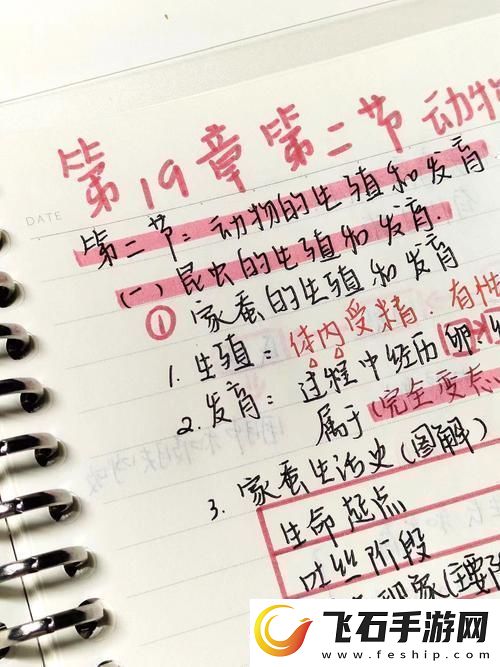 第19章第二节动物
DATE
第二节:动物的生殖和发育
(一)昆虫的生殖和发育.
① 家蚕的生殖和发育
1.生殖:体内受精.有性
2.发育:过程中经历卵.
属于(完全变态
3.家蚕生活史(图解)
生命起点
吐丝阶段
飞石手游网
www.feship.com